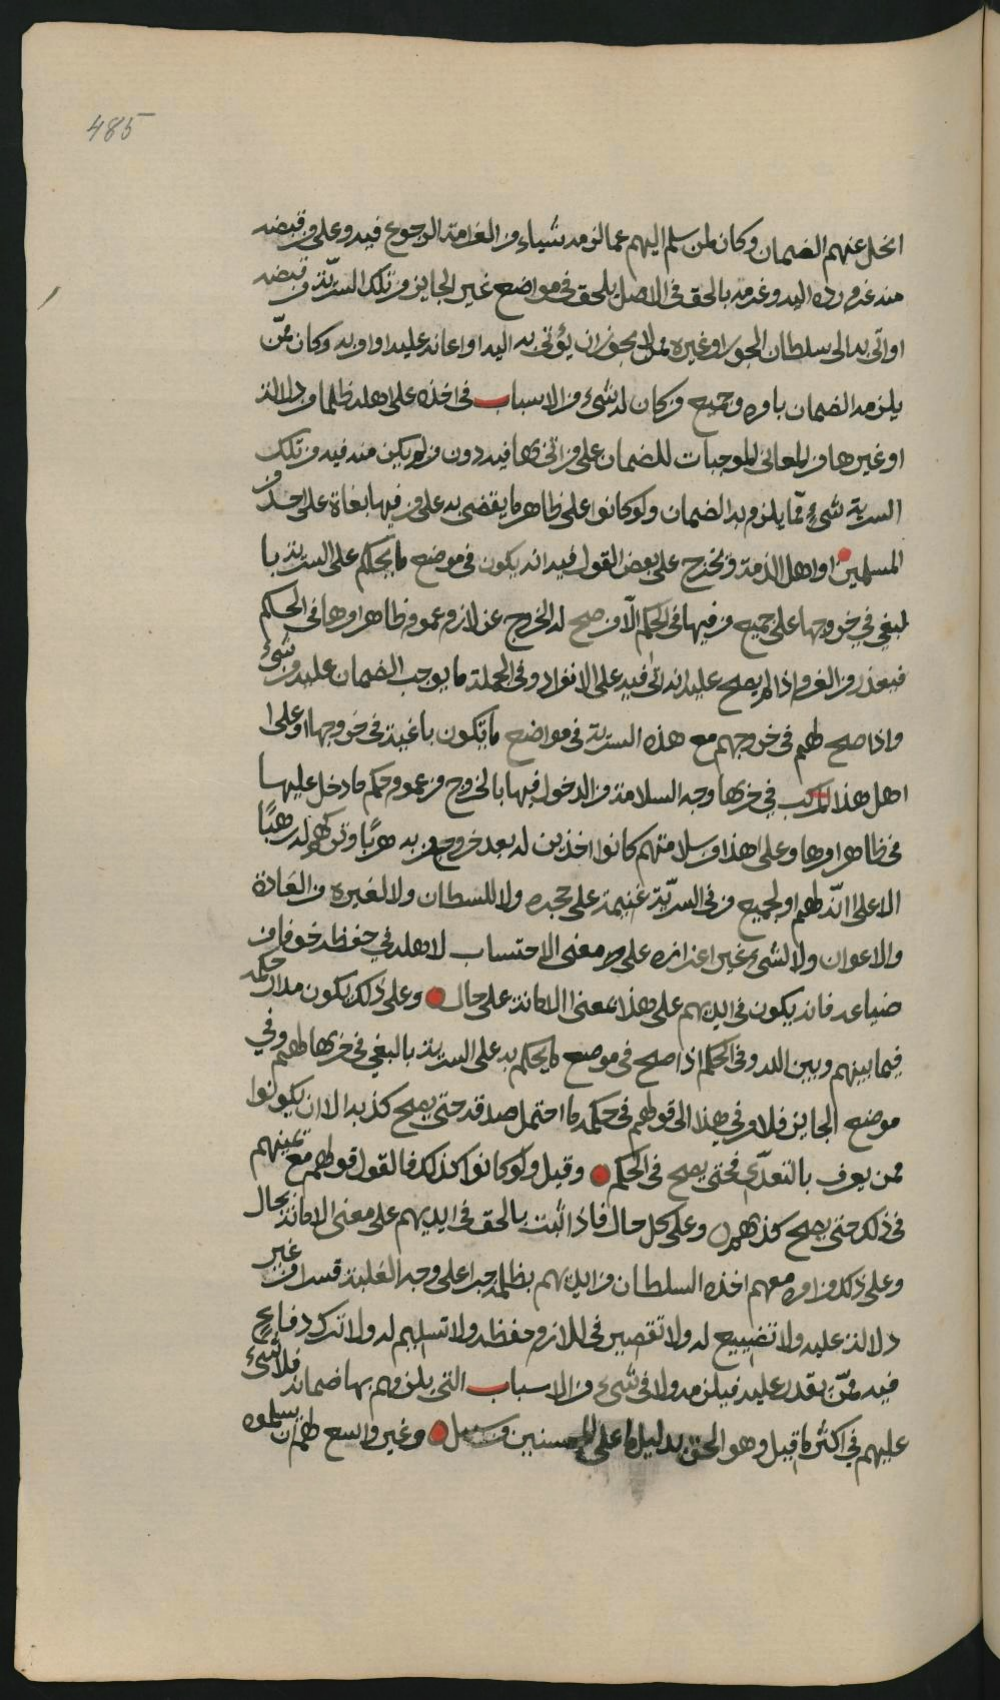 485
انحل عنهم الضمان وكان لمن سلم اليهم عما لزمه شياء من الغرامة الرجوع فيه وعلى من قبضه
منه غرم رده اليه وغرمه بالحق في الاصل يلحق في مواضع غير الجايز من تلك السرية من قبضه
او اتى به الى سلطان الجور او غيره ممن لا يجوز ان يؤتى به اليه او اعانه عليه او اوبه وكان ممن
يلزمه الضمان بامره وجميع من كان له شيء من الاسباب في اخذه على اهله ظلما من دلالة
او غيرها من المعاني الموجبات للضمان على من اتى بها فيه دون من لم يكن منه فيه من تلك
السرية شيء مما يلزم به الضمان ولو كانوا على ظاهر ما يقضى به على من فيها بغاة على احد من
المسلمين او اهل الذمة ويخرج على بعض القول فيه انه يكون في موضع ما يحكم على السرية با
لبغي في خروجها على جميع من فيها في الحكم الا من صح له الخروج عن لازم عموم ظاهر امرها في الحكم
فيعذر من الغرم اذا لم يصح عليه انه اتى فيه على الانفراد وفي الجملة ما يوجب الضمان عليه من شيء
واذا صح لهم في خروجهم مع هذه السرية في مواضع ما تكون باغية في خروجها او على ا
اهل هذا المركب في حربها وجه السلامة من الدخول فيها بالخروج من عموم حكم ما دخل عليها
في ظاهر امرها وعلى هذا من سلامتهم كانوا اخذين له بعد خروج من به هربا وتركهم له رهبا
لا على انه لهم او لجميع من في السرية غنيمة على حجره ولا للسطان ولا لغيره من العادة
والاعوان ولا لشيء غير اعزازه على معنى الاحتساب لاهله في حفظه خوفا من
ضياعه فانه يكون في ايديهم على هذا بمعنى الامانة على حال وعلى ذلك يكون مدار حكمه
فيما بينهم وبين الله وفي الحكم اذا صح في موضع ما يحكم به على السرية بالبغي في حربها لهم وفي
موضع الجايز فلا من في هذا الى قولهم في حكمه ما احتمل صدقه حتى يصح كذبه الا ان يكونوا
ممن يعرف بالتعدي فحتى يصح في الحكم وقيل ولو كانوا كذلك فالقول قولهم مع يمينهم
في ذلك حتى يصح كذبهم وعلى كل حال فاذا ثبت بالحق في ايديهم على معنى الامانة بحال
وعلى ذلك من امره معهم اخذه السلطان من ايديهم بظلمه جبرا على وجه الغلبة قسرا من غير
دلالة عليه ولا تضييع له ولا تقصير في اللازم من حفظه ولا تسليم له ولا ترك دفاع
فيه ممن يقدر عليه فيلزمه ولا في شيء من الاسباب التي يلزمهم بها ضمانه فلا شيء
عليهم في اكثر ما قيل وهو الحق بدليل ما على المحسنين من سبيل وغير واسع لهم ان يسلموه